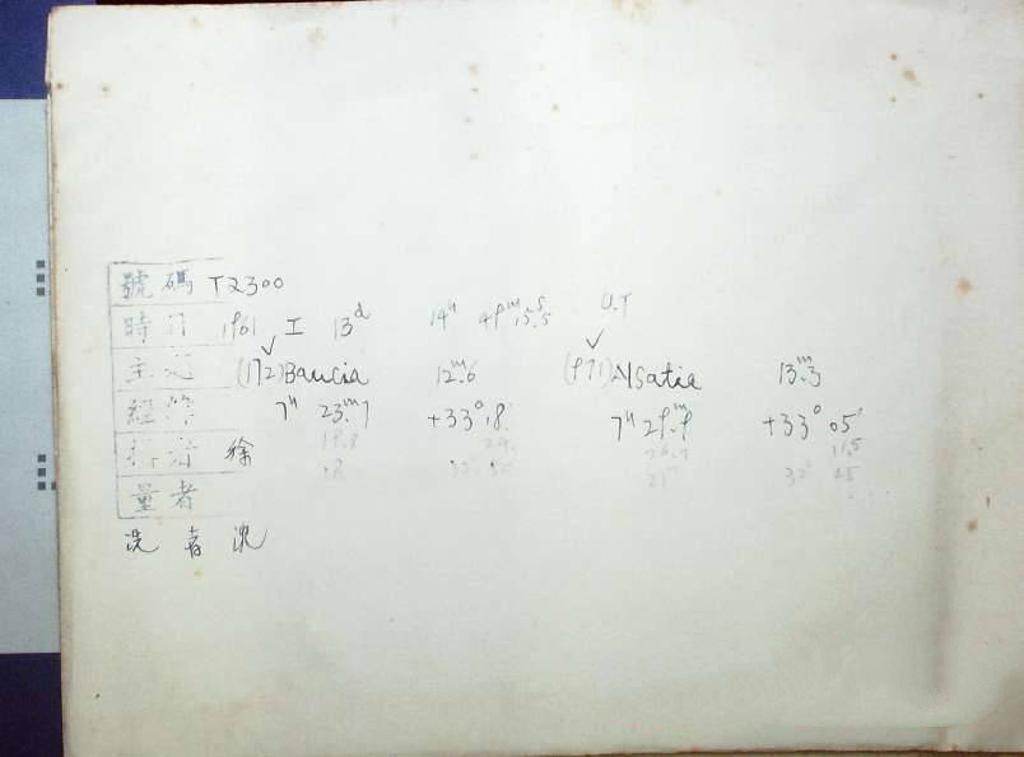 號碼 T2300
時 1961 I 13ᵈ 14ʰ 49ᵐ15ˢ.5 U.T
主 (172)Baucia 12ᵐ.6 (971)Alsatia 13ᵐ.3
經 7ʰ 23ᵐ.7 +33°18' 7ʰ 29ᵐ.9 +33° 05'
徐
量者
洗者 沈